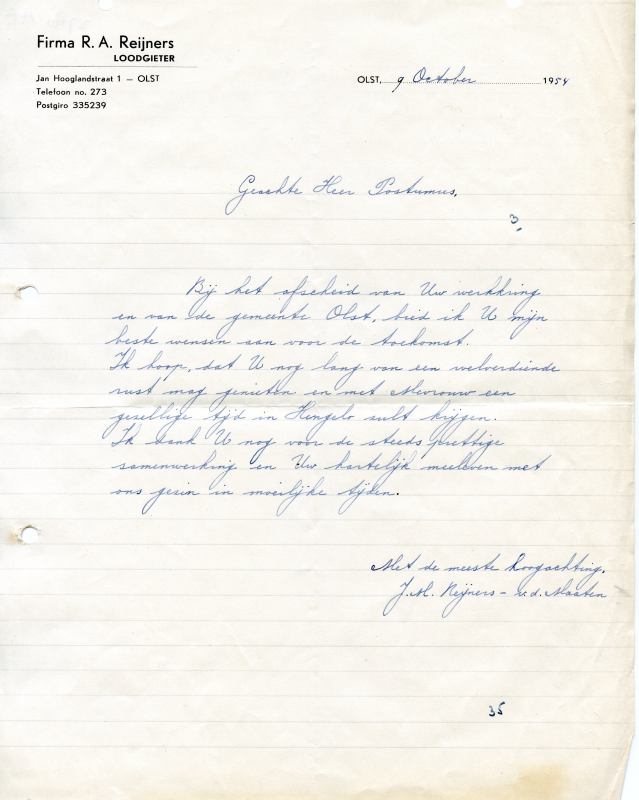 Firma R. A. Reijners
LOODGIETER
Jan Hooglandstraat 1 — OLST
Telefoon no. 273
Postgiro 335239
OLST, 9 October 1954
Geachte Heer Postumus,
3
Bij het afscheid van Uw werkkring
en van de gemeente Olst, bied ik U mijn
beste wensen aan voor de toekomst.
Ik hoop, dat U nog lang van een welverdiende
rust mag genieten en met Mevrouw een
gezellige tijd in Hengelo zult krijgen.
Ik dank U nog voor de steeds prettige
samenwerking en Uw hartelijk meeleven met
ons gezin in moeilijke tijden.
Met de meeste hoogachting,
J.M. Reijners - v.d. Maaten
35